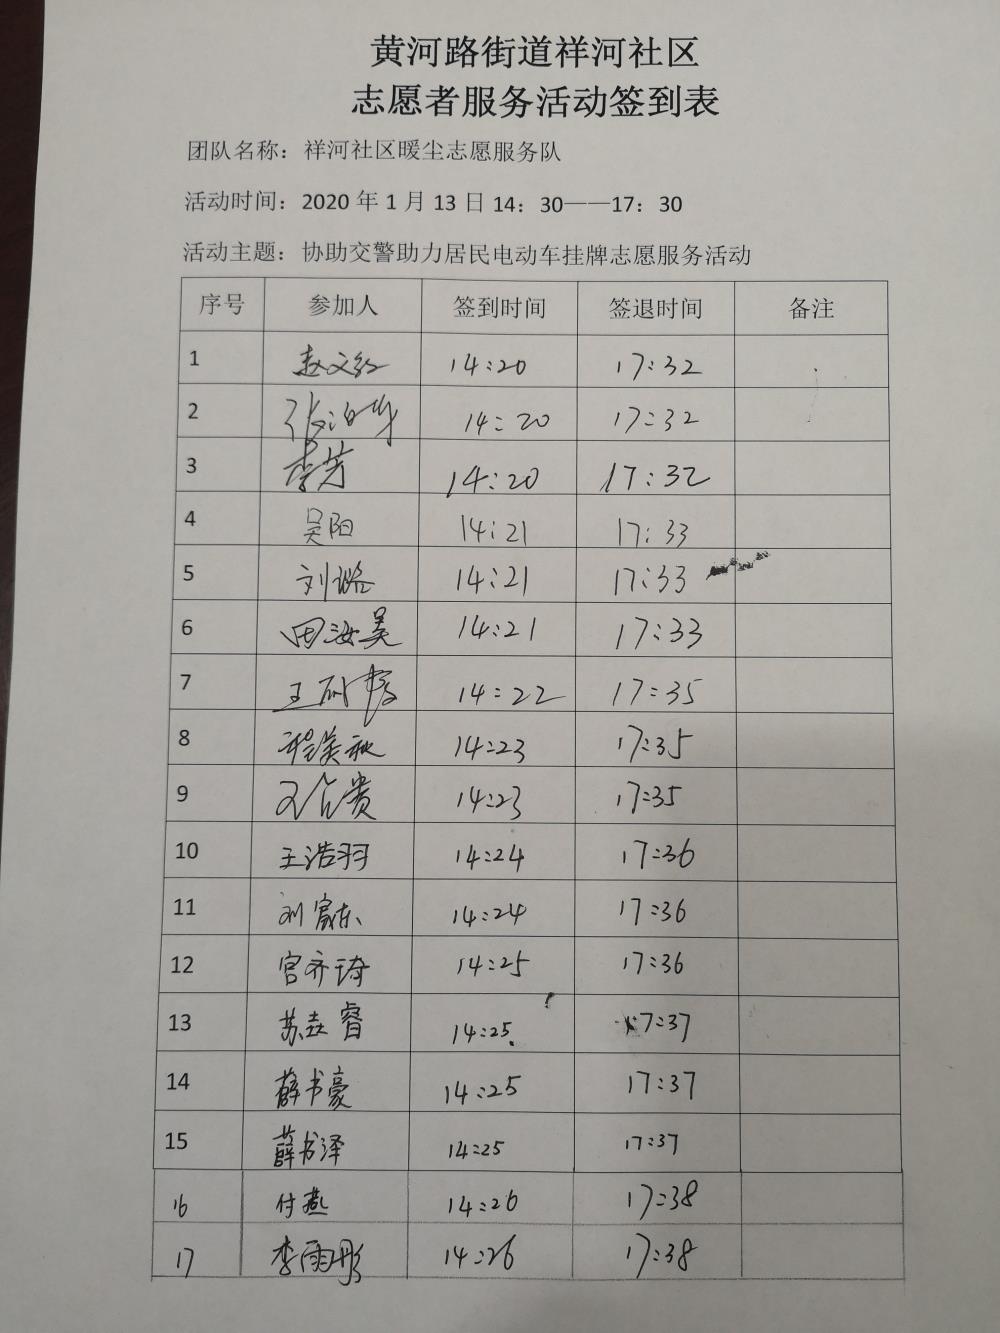 黄河路街道祥河社区
志愿者服务活动签到表
团队名称：祥河社区暖尘志愿服务队
活动时间：2020 年 1 月 13 日 14：30——17：30
活动主题：协助交警助力居民电动车挂牌志愿服务活动
序号 参加人 签到时间 签退时间 备注
1 赵文红 14:20 17:32
2 14:20 17:32
3 李芳 14:20 17:32
4 吴阳 14:21 17:33
5 刘璐 14:21 17:33
6 田汝美 14:21 17:33
7 王 14:22 17:35
8 程美秋 14:23 17:35
9 14:23 17:35
10 王浩羽 14:24 17:36
11 刘富东 14:24 17:36
12 宫齐琦 14:25 17:36
13 苏垚睿 14:25 17:37
14 薛书豪 14:25 17:37
15 薛书泽 14:25 17:37
16 付燕 14:26 17:38
17 李雨彤 14:26 17:38